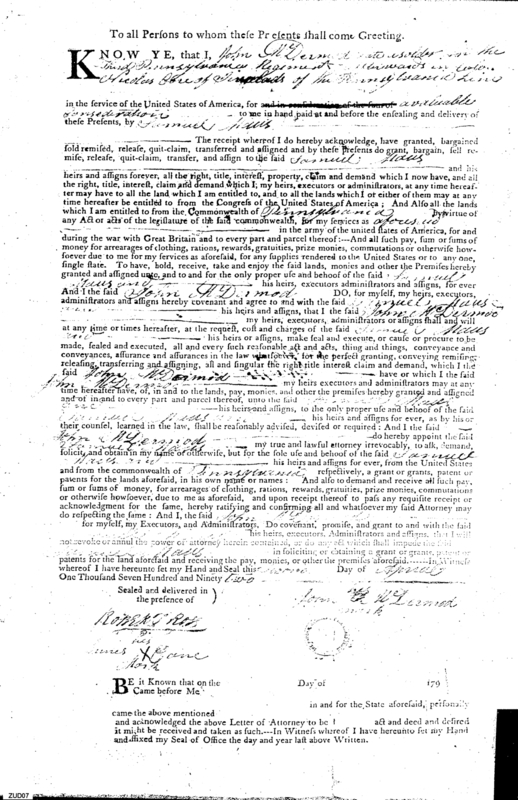 To all Persons to whom these Presents shall come Greeting.
KNOW YE, that I, John McDermod late soldier in the
Third Pennsylvania Regiment afterwards in
of the Pennsylvania Line
in the service of the United States of America, for and in consideration of the sum of a valuable
consideration to me in hand paid at and before the ensealing and delivery of
these Presents, by Samuel Maus
The receipt whereof I do hereby acknowledge, have granted, bargained
sold remised, release, quit-claim, transferred and assigned and by these presents do grant, bargain, sell re-
mise, release, quit-claim, transfer, and assign to the said Samuel Maus and
heirs and assigns forever, all the right, title, interest, property, claim and demand which I now have, and all
the right, title, interest, claim and demand which I; my heirs, executors or administrators, at any time hereaf-
ter may have to all the land which I am entitled to, and to all the lands which I or either of them may at any
time hereafter be entitled to from the Congress of the United States of America; And Also all the lands
which I am entitled to from the Commonwealth of Pennsylvania by virtue of
any Act or Acts of the legislature of the said commonwealth, for my services as aforesaid
in the army of the united states of America, for and
during the war with Great Britain and to every part and parcel thereof:---And all such pay, sum or sums of
money for arrearages of clothing, rations, rewards, gratuities, prize monies, commutations or otherwise how-
soever due to me for my services as aforesaid, for any supplies rendered to the United States or to any one,
single state. To have, hold, receive, take and enjoy the said lands, monies and other the Premises hereby
granted and assigned unto, and to and for the only proper use and behoof of the said Samuel
Maus and his heirs, executors administrators and assigns, for ever
And I the said John McDermod DO, for myself, my heirs, executors,
administrators and assigns hereby covenant and agree to and with the said Samuel Maus
his heirs and assigns, that I the said John McDermod
my heirs, executors, administrators or assigns shall and will
at any time or times hereafter, at the request, cost and charges of the said Samuel Maus
his heirs or assigns, make seal and execute, or cause or procure to be
made, sealed and executed, all and every such reasonable act and acts, thing and things, conveyance and
conveyances, assurance and assurances in the law whatsoever, for the perfect granting, conveying remising,
releasing, transferring and assigning, all and singular the right title interest claim and demand, which I the
said John McDermod have or which I the said
John McDermod my heirs executors and administrators may at any
time hereafter have, of, in and to the lands, pay, monies, and other the premises hereby granted and assigned
and of in and to every part and parcel thereof, unto the said
his heirs and assigns, to the only proper use and behoof of the said
Samuel Maus his heirs and assigns for ever, as by his or
their counsel, learned in the law, shall be reasonably advised, devised or required: And I the said
John McDermod do hereby appoint the said
Samuel Maus my true and lawful attorney irrevocably, to ask, demand,
solicit, and obtain in my name or otherwise, but for the sole use and behoof of the said Samuel
Maus his heirs and assigns for ever, from the United States
and from the commonwealth of Pennsylvania respectively, a grant or grants, patent or
patents for the lands aforesaid, in his own name or names: And also to demand and receive all such pay,
sum or sums of money, for arrearages of clothing, rations, rewards, gratuities, prize monies, commutations
or otherwise howsoever, due to me as aforesaid, and upon receipt thereof to pass any requisite receipt or
acknowledgment for the same, hereby ratifying and confirming all and whatsoever my said Attorney may
do respecting the same: And I, the said John
for myself, my Executors, and Administrators. Do covenant, promise, and grant to and with the said
his heirs, executors, Administrators and assigns, that I will
not revoke or annul the power of attorney herein contained, or do any act which shall impede the said
Maus in soliciting or obtaining a grant or grants, patent or
patents for the land aforesaid and receiving the pay, monies, or other the premises aforesaid.------In Witness
whereof I have hereunto set my Hand and Seal this Day of April
One Thousand Seven Hundred and Ninety two
Sealed and delivered in
the presence of
John McDermod
mark
Robert
his
James X Lane
Mark
BE it Known that on the Day of 179
Came before Me
in and for the State aforesaid, personally
came the above mentioned
and acknowledged the above Letter of Attorney to be act and deed and desired
it might be received and taken as such.---In Witness whereof I have hereunto set my Hand
and affixed my Seal of Office the day and year last above Written.
ZUD07